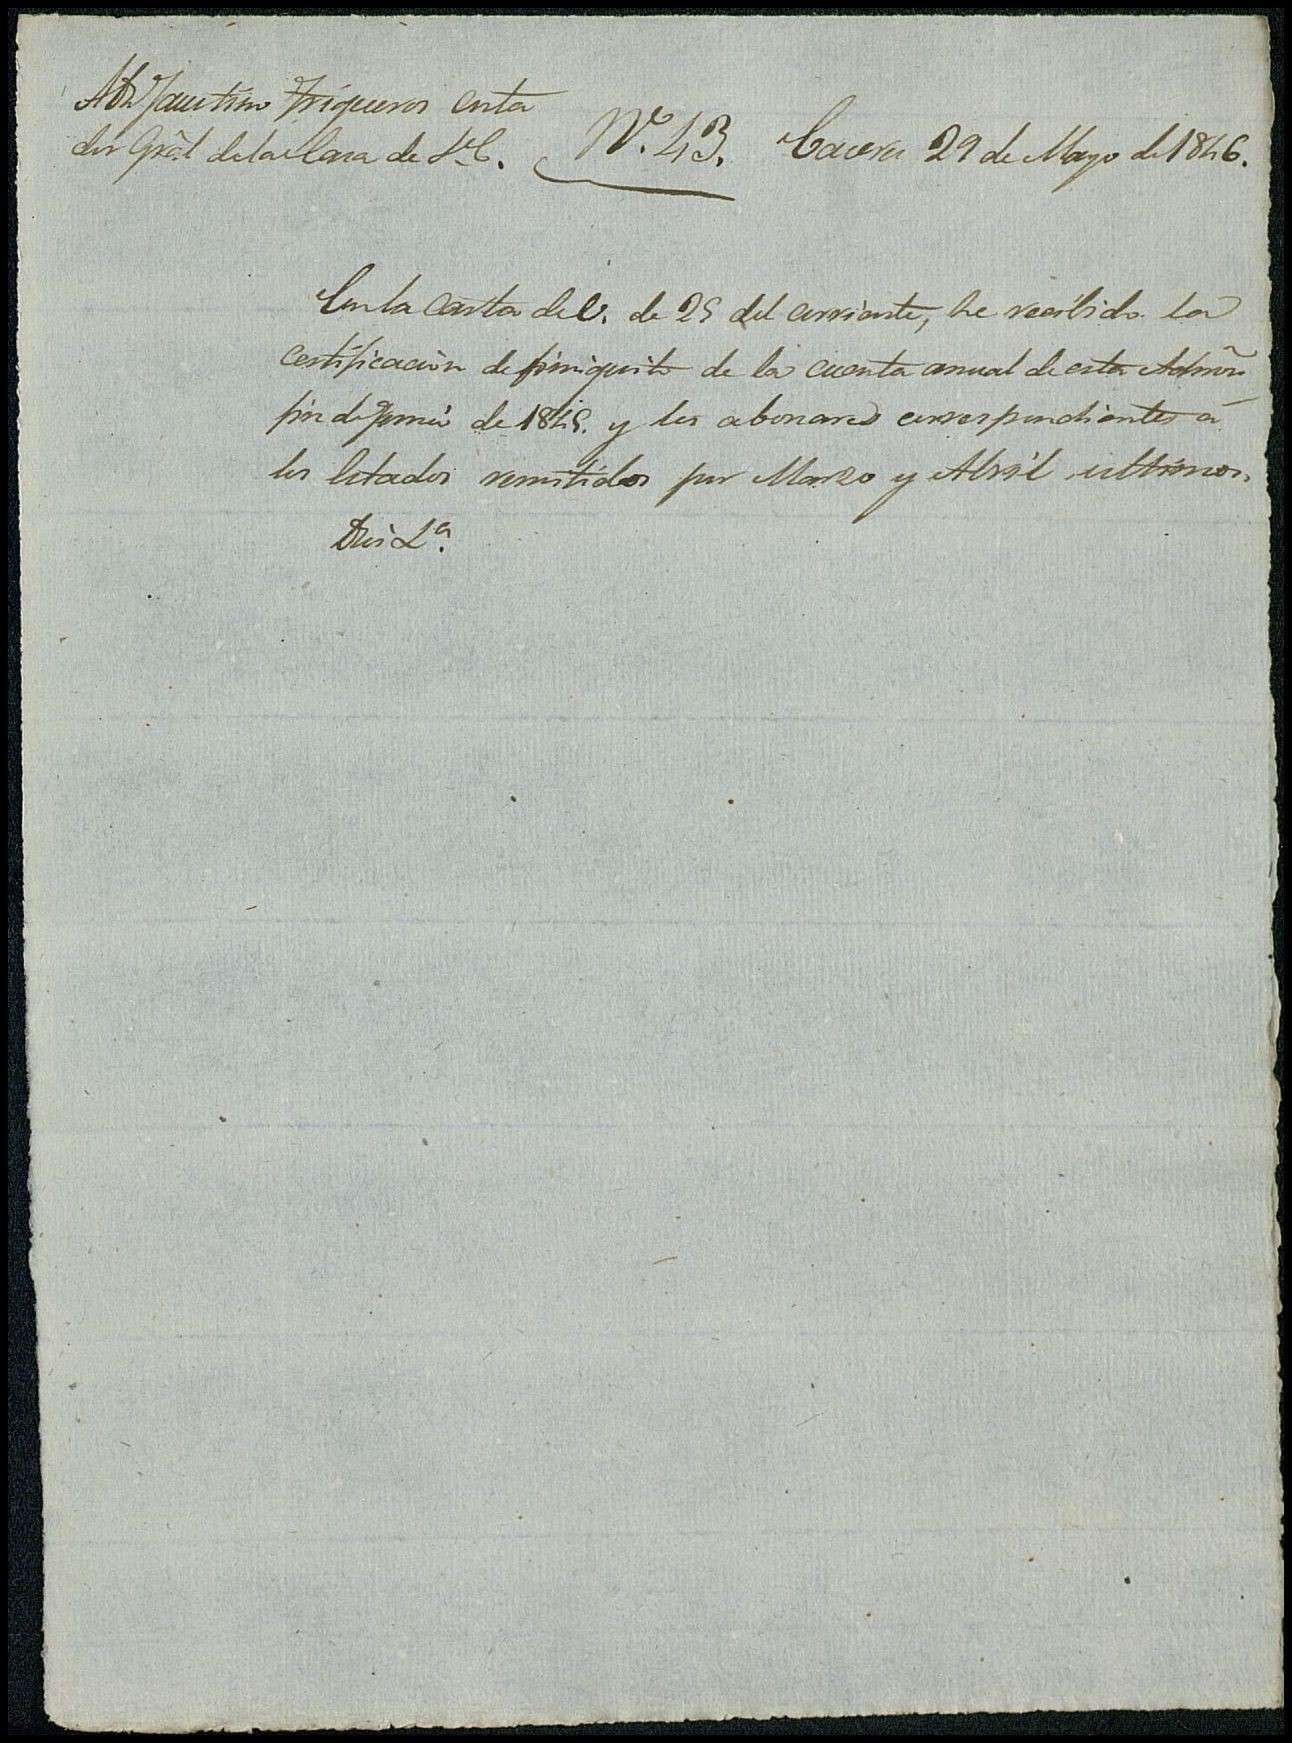 A D. Faustino Trigueros Conta
dor Grãl de la Casa de S. E.
Nº. 43.
Caceres 29 de Mayo de 1846.
Con la carta de V. de 25 del corriente, he recibido la
certificacion de finiquito de la cuenta anual de esta Admõn
fin de Junio de 1845. y los abonares correspondientes á
los Estados remitidos por Marzo y Abril ultimos.
Dios Lª.